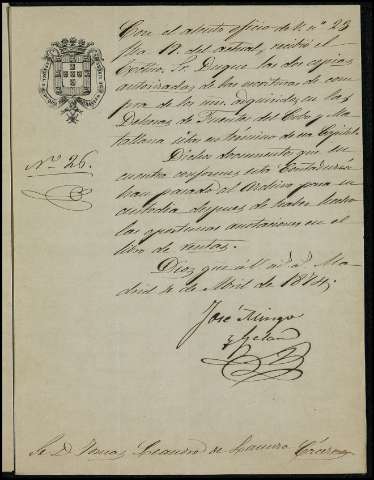 Con el atento oficio de V. nº 25
fha 19. del actual, recibió el
Excmo. Sr. Duque las dos copias
autorizadas de las escrituras de com-
pra de los adquiridos en las
Dehesas de Fuentes del Cubo y Ma-
tallana sitas en término de
Dichos documentos que en-
cuentra conformes esta Contaduría
han pasado al Archivo para su
custodia despues de haber hecho
las oportunas anotaciones en el
libro de rentas.
Nº 26.
Dios gue á V. ms. as. Ma-
drid 4 de Abril de 1874.
José Mingo
Sr. D. Tomas Leandro de Cáceres